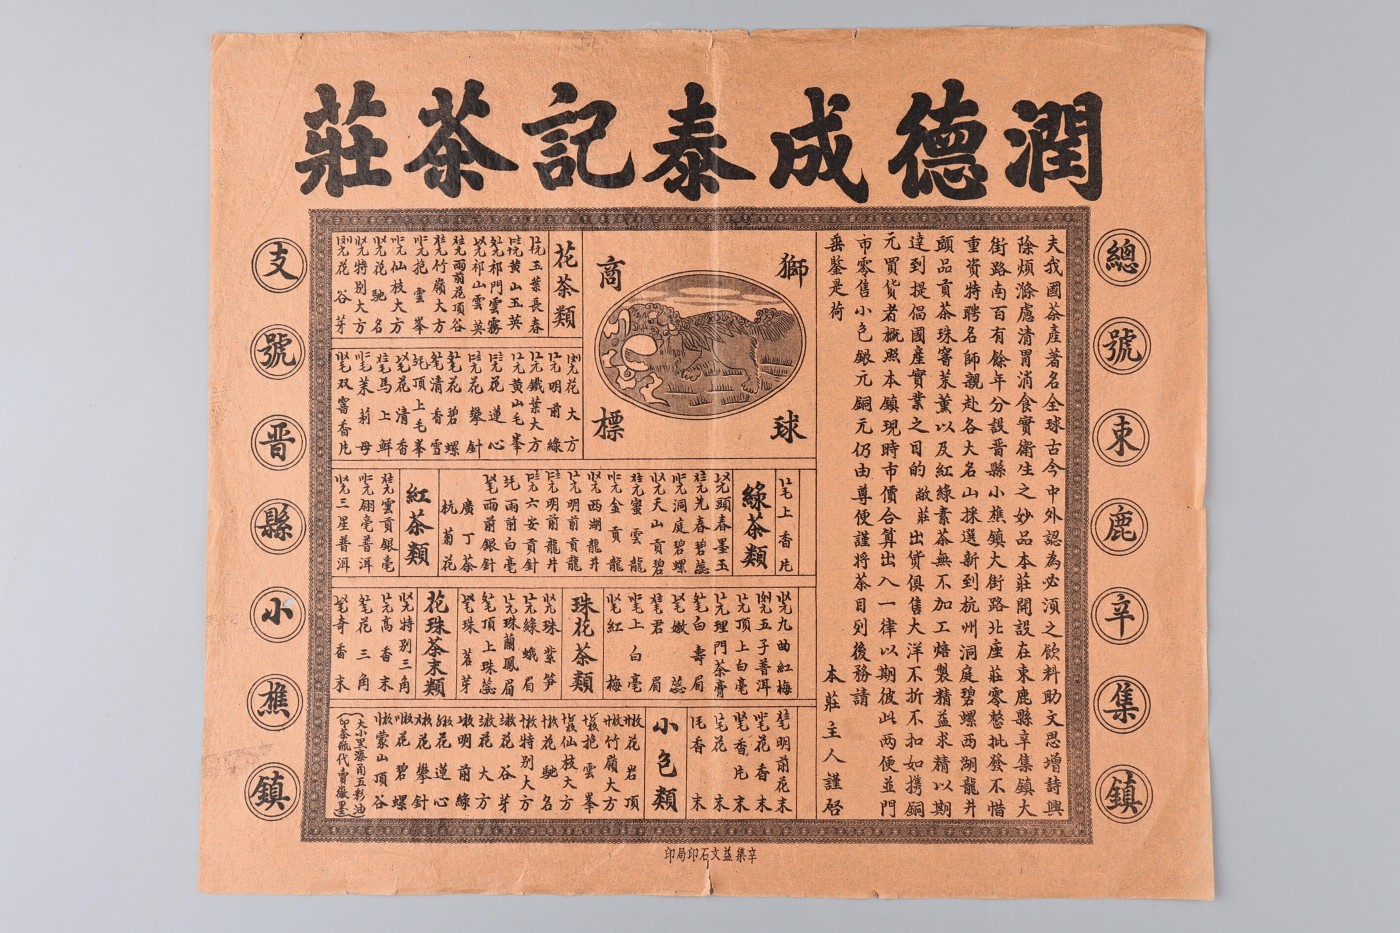 潤德成泰記茶莊
總號束鹿辛集鎮
夫我國茶產著名全球古今中外認為必須之飲料助文思增詩興
除煩滌慮清胃消食實衛生之妙品本莊開設在束鹿縣辛集鎮大
街路南百有餘年分設晋縣小樵鎮大街路北座莊零整批發不惜
重資特聘名師親赴各大名山採選新到杭州洞庭碧螺西湖龍井
頭品貢茶珠窨茉薰以及紅綠素茶無不加工焙製精益求精以期
達到提倡國產實業之目的 敝莊出貨俱售大洋不折不扣如携銅
元買貨者概照本鎮現時市價合算出入一律以期彼此兩便並門
市零售小色銀元銅元仍由尊便謹將茶目列後務請
垂鑒是荷
本莊主人謹啓
獅球
商標
花茶類
玉葉長春
黃山玉英
祁門雲霧
祁山雲英
雨前花頂谷
竹嶺大方
挹雲峯
仙枝大方
花馳名
特別大方
花谷芽
花大方
明前綠
鐵葉大方
黃山毛峯
花蓮心
花攀針
花碧螺
清香雪
頂上毛峯
花清香
馬上鮮
茉莉母
双窨香片
上香片
綠茶類
頭春墨玉
先春碧蕊
洞庭碧螺
天山貢碧
蜜雲龍
金貢龍
西湖龍井
明前貢龍
明前龍井
六安貢針
雨前白毫
雨前銀針
廣丁茶
杭菊花
紅茶類
雲貢銀毫
翎毫普洱
三星普洱
九曲紅梅
五子普洱
頂上白毫
理門茶膏
白壽眉
嫩蕊
君眉
上白毫
紅梅
珠花茶類
珠紫笋
綠蛾眉
珠蘭鳳眉
頂上珠蕊
珠茗芽
花珠茶末類
特別三角
高香末
花三角
奇香末
明前花末
花香末
香片末
花末
香末
小色類
花岩頂
竹嶺大方
挹雲峯
仙枝大方
花馳名
特別大方
花谷芽
花大方
明前綠
花蓮心
花攀針
花碧螺
蒙山頂谷
大小黑漆角五彩油
印茶瓶代賣徽墨
支號晋縣小樵鎮
辛集益文石印局印